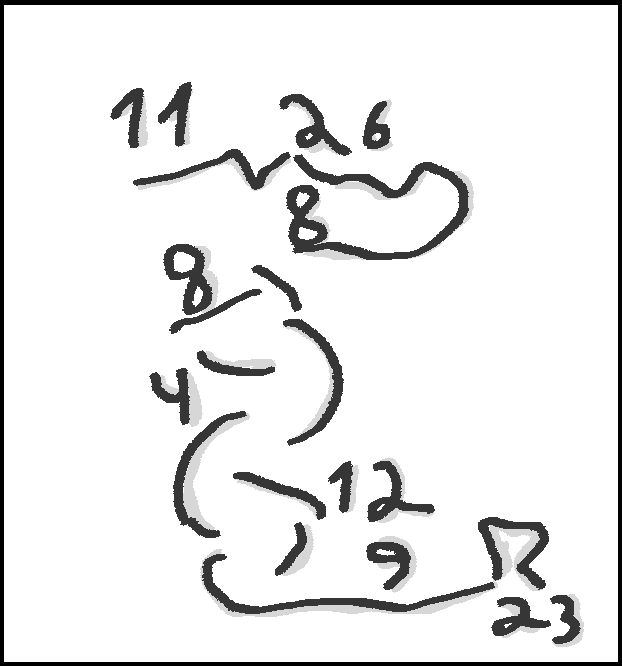 11 26
8
8
4
12
9
23